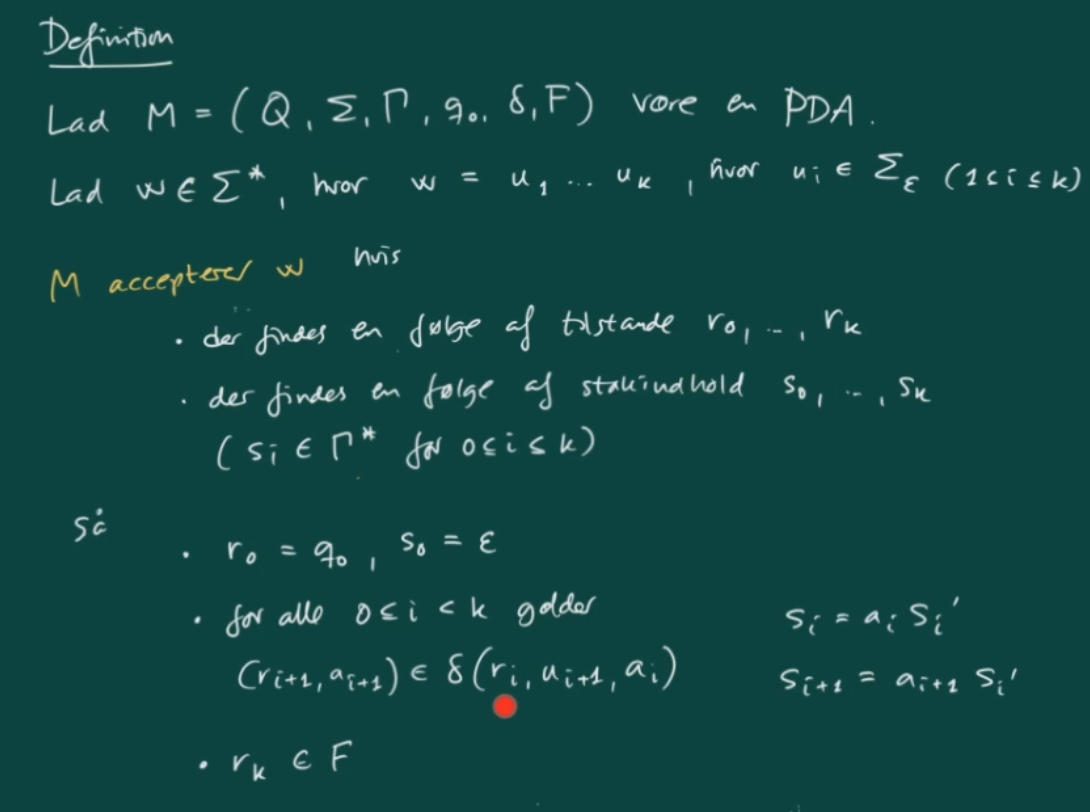 Definition
Lad M = (Q, Σ, Γ, q₀, δ, F) være en PDA.
Lad w ∈ Σ*, hvor w = u₁ ... uₖ, hvor uᵢ ∈ Σ_ε (1 ≤ i ≤ k)
M accepterer w hvis
· der findes en følge af tilstande r₀, ..., rₖ
· der findes en følge af stakindhold s₀, ..., sₖ
(sᵢ ∈ Γ* for 0 ≤ i ≤ k)
så
· r₀ = q₀, s₀ = ε
· for alle 0 ≤ i < k gælder sᵢ = aᵢ sᵢ'
(rᵢ₊₁, aᵢ₊₁) ∈ δ(rᵢ, uᵢ₊₁, aᵢ) sᵢ₊₁ = aᵢ₊₁ sᵢ'
· rₖ ∈ F